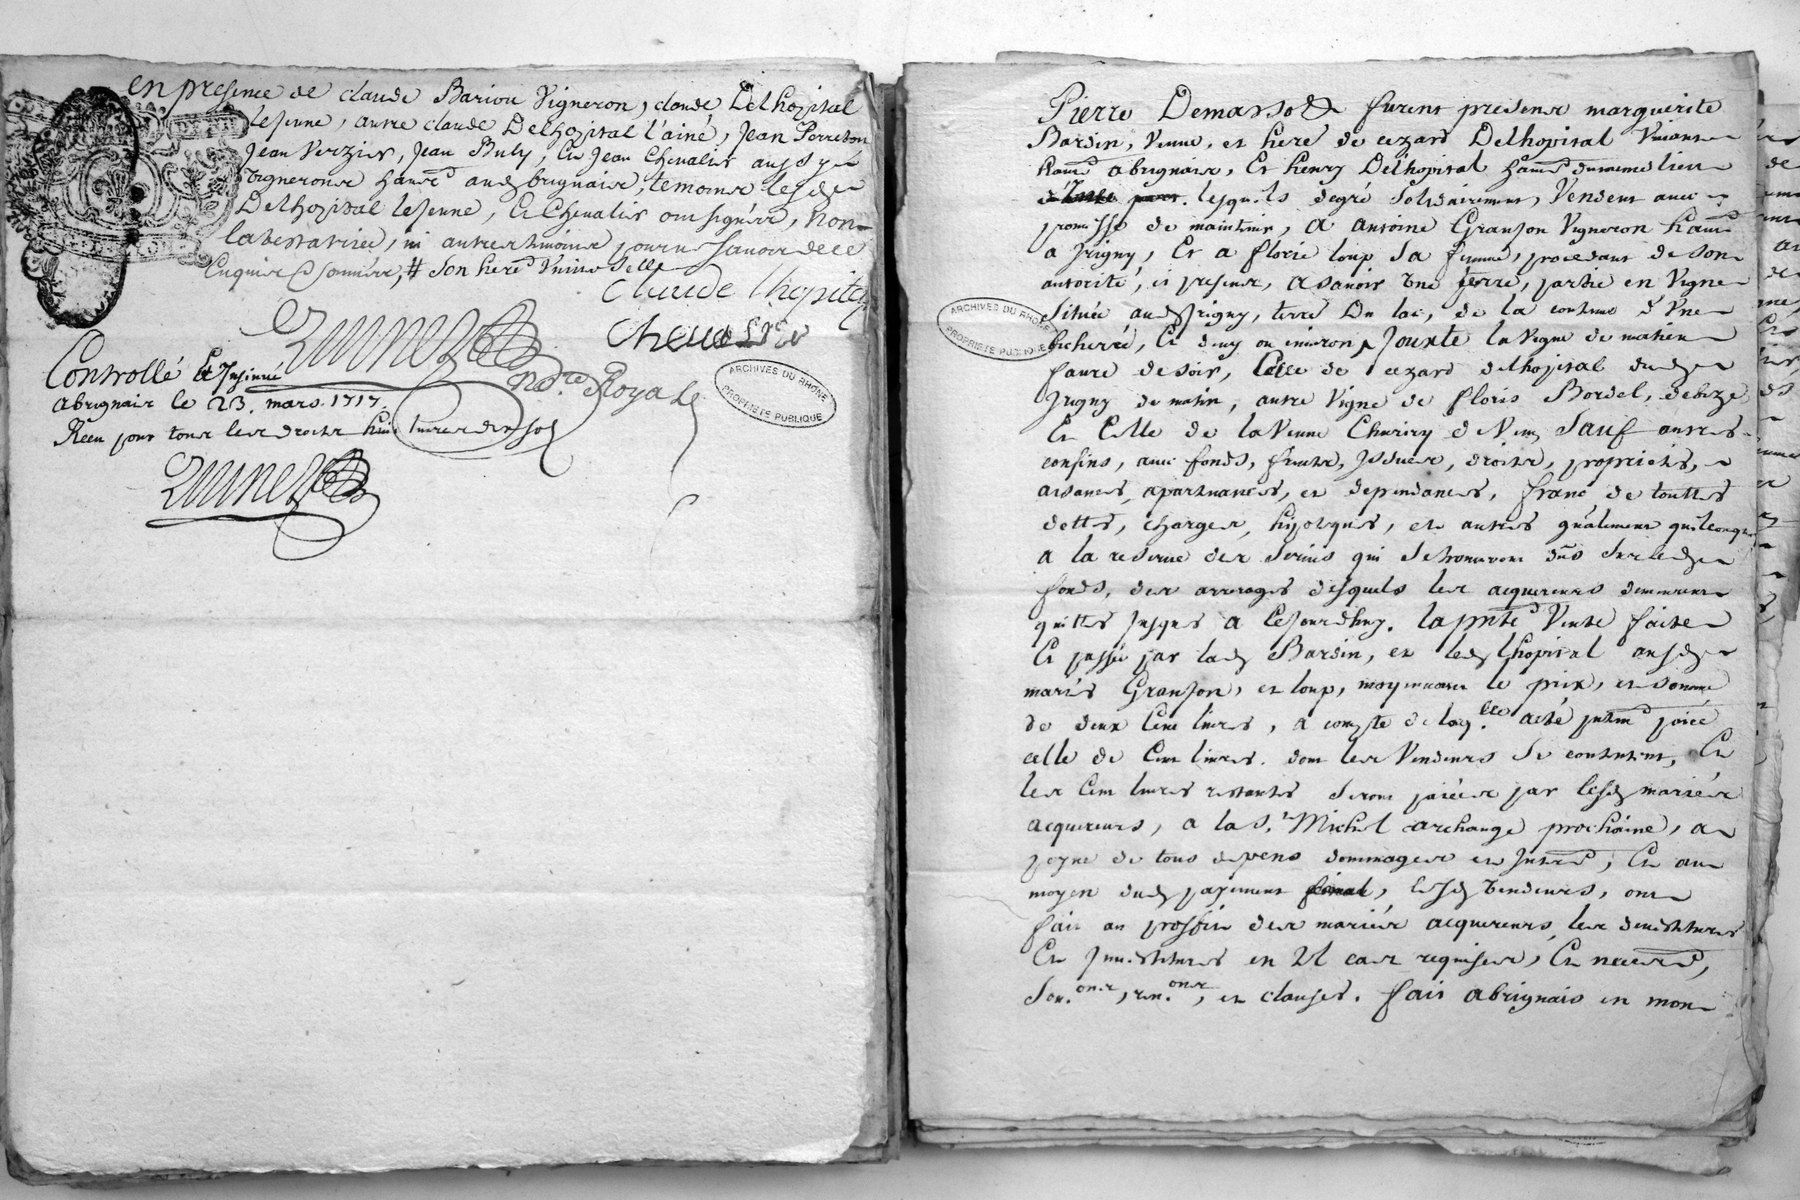 en presence de claude Bariou Vigneron, claude Delhopital
lejeune, autre claude Delhopital l'ainé, Jean Perreton
Jean Verzier, Jean Buly, Et Jean Chevalier
vignerons habitans brignais, temoins
Delhopital lejeune, Et Chevalier ont signéz, non
latestatrice, ni autres temoins pour ne scavoir de ce
Enquis et sommés, # son here universelle
Claude lhopital
Chevalier
nore Royal
Controllé Et Insinué
Abrignais le 23. mars. 1717.
Receu pour tous les droits huit livres dix sols
ARCHIVES DU RHÔNE
PROPRIÉTÉ PUBLIQUE
Pierre Demasso & furent presens marguerite
Bardin, Veuve, et here de cezard Delhopital Vivant
habt abrignais, Et henry Delhopital habt dumeme lieu
lesquels degré solidairement, Vendent avec
promesse de maintenir, A antoine Granjon Vigneron habt
a Irigny, Et a florie loup sa femme, procedant de son
autorité, ci presens, a scavoir une terre, partie en Vigne
située audt Irigny, terre Du lac, de la contenue d'Une
bicherée, Et demy ou environ, Jouxte la vigne de mathieu
faure de soir, Celle de cezard delhopital dudt
Irigny de matin, autre Vigne de floris Bordel, debize
Et Celle de la Veuve de Vent, Sauf autres
confins, avec fonds, fruits, Issues, droits, proprietés,
aisances, apartenances, et dependances, franc de touttes
dettes, charges, hipoteques, et autres gñalement quelconques
a la reserve des servis qui se trouveront dus sur ledt
fonds, des arrerages desquels les acquereurs demeurent
quittes jusques a Cejourdhuy. la pñte Vente faite
Et passée par ladt Bardin, et ledt lhopital ausdt
mariés Granjon, et loup, moyennant le prix, et somme
de deux Cent livres, a compte de laqlle a eté pntemt paiée
celle de Cent livres. dont les Vendeurs se contentent, Et
les Cent livres restantes seront paiées par lesdt mariés
acquereurs, a la St Michel archange prochaine, a
peyne de tous depens dommages et Interets, Et au
moyen dudt payement, lesdt vendeurs, ont
fait au proffit des mariés acquereurs les devestitures
Et Investitures en tel cas requises, Et necesres,
Sou.ons, ren.ons, et clauses. fait abrignais en mon
ARCHIVES DU RHÔNE
PROPRIÉTÉ PUBLIQUE